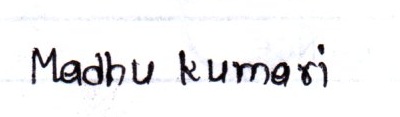 Madhu kumari